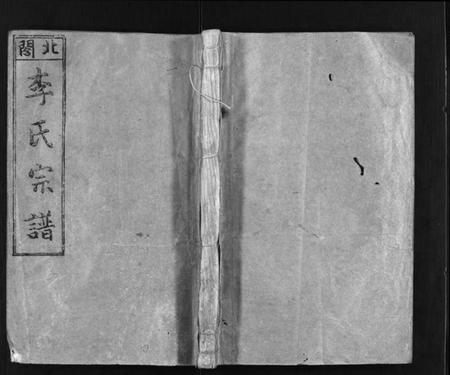 北閣
李氏宗譜